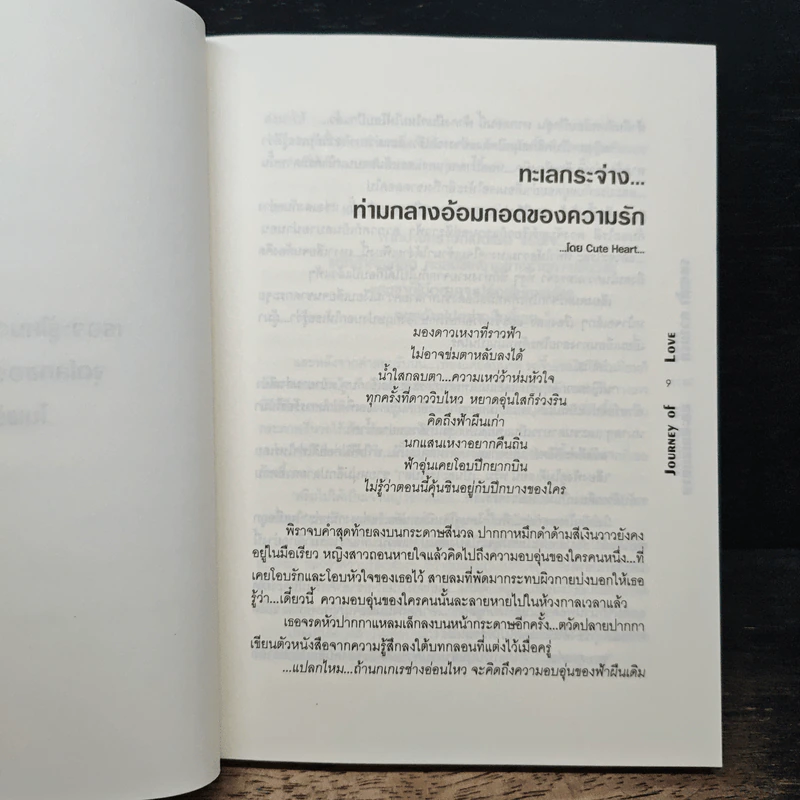 ทะเลกระจ่าง...
ท่ามกลางอ้อมกอดของความรัก
...โดย Cute Heart...
มองดาวเหงาที่ราวฟ้า
ไม่อาจข่มตาหลับลงได้
น้ำใสกลบตา...ความเหว่ว้าห่มหัวใจ
ทุกครั้งที่ดาววิบไหว หยาดอุ่นใสก็ร่วงริน
คิดถึงฟ้าผืนเก่า
นกแสนเหงาอยากคืนถิ่น
ฟ้าอุ่นเคยโอบปีกยากบิน
ไม่รู้ว่าตอนนี้คุ้นชินอยู่กับปีกบางของใคร
พิราจบคำสุดท้ายลงบนกระดาษสีนวล ปากกาหมึกดำด้ามสีเงินวาวยังคง
อยู่ในมือเรียว หญิงสาวถอนหายใจแล้วคิดไปถึงความอบอุ่นของใครคนหนึ่ง...ที่
เคยโอบรักและโอบหัวใจของเธอไว้ สายลมที่พัดมากระทบผิวกายบ่งบอกให้เธอ
รู้ว่า...เดี๋ยวนี้ ความอบอุ่นของใครคนนั้นละลายหายไปในห้วงกาลเวลาแล้ว
เธอจรดหัวปากกาแหลมเล็กลงบนหน้ากระดาษอีกครั้ง...ตวัดปลายปากกา
เขียนตัวหนังสือจากความรู้สึกลงใต้บทกลอนที่แต่งไว้เมื่อครู่
...แปลกไหม...ถ้านกเกเรช่างอ่อนไหว จะคิดถึงความอบอุ่นของฟ้าผืนเดิม
Journey of ๙ Love